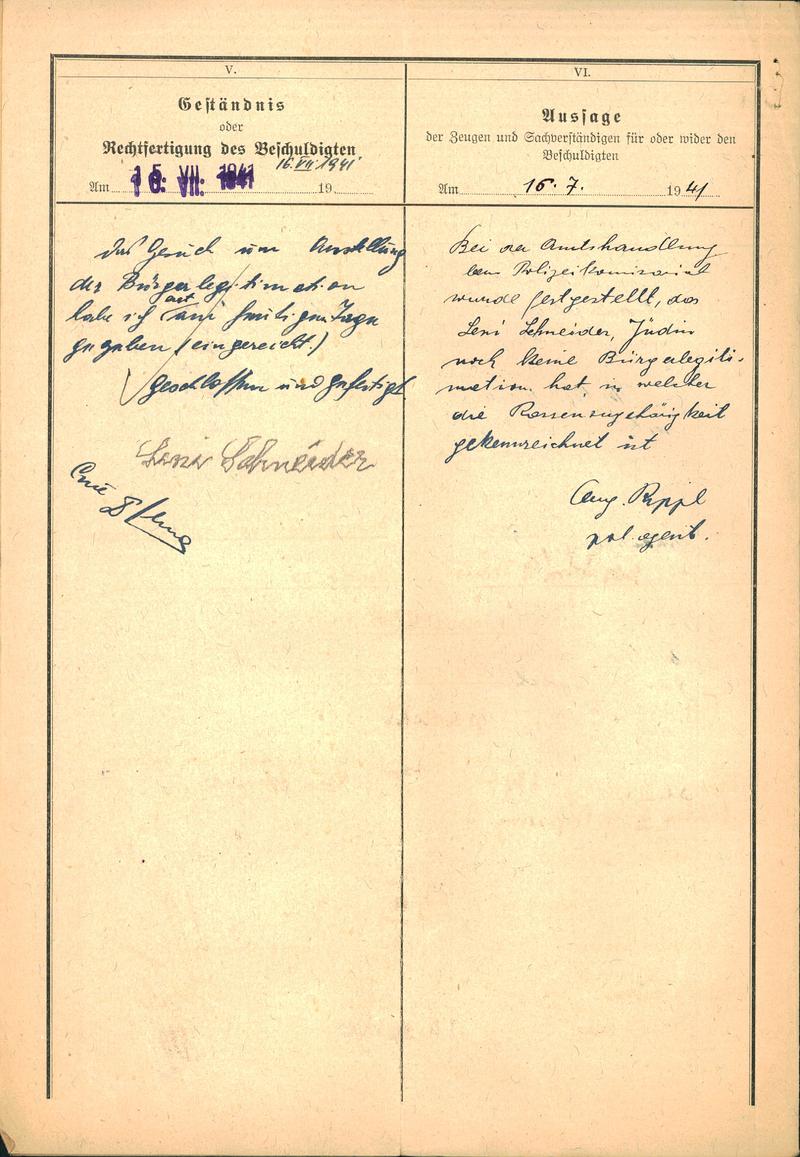 V.
Geständnis
oder
Rechtfertigung des Beschuldigten
16.VII.1941
Am 16. VII. 1941 19
Das Gesuch um Ausstellung
der Bürgerlegitimation
habe ich erst am heutigen Tage
gegeben (eingereicht.)
Geschlossen und gefertigt
Leni Schneider
VI.
Aussage
der Zeugen und Sachverständigen für oder wider den
Beschuldigten
Am 16. 7. 1941
Bei der Amtshandlung
beim Polizeikomisariat
wurde festgestellt, das
Leni Schneider, Jüdin
noch keine Bürgerlegiti-
mation hat in welcher
die Rassenzugehörigkeit
gekennzeichnet ist
Aug. Rippl
pol. agent.